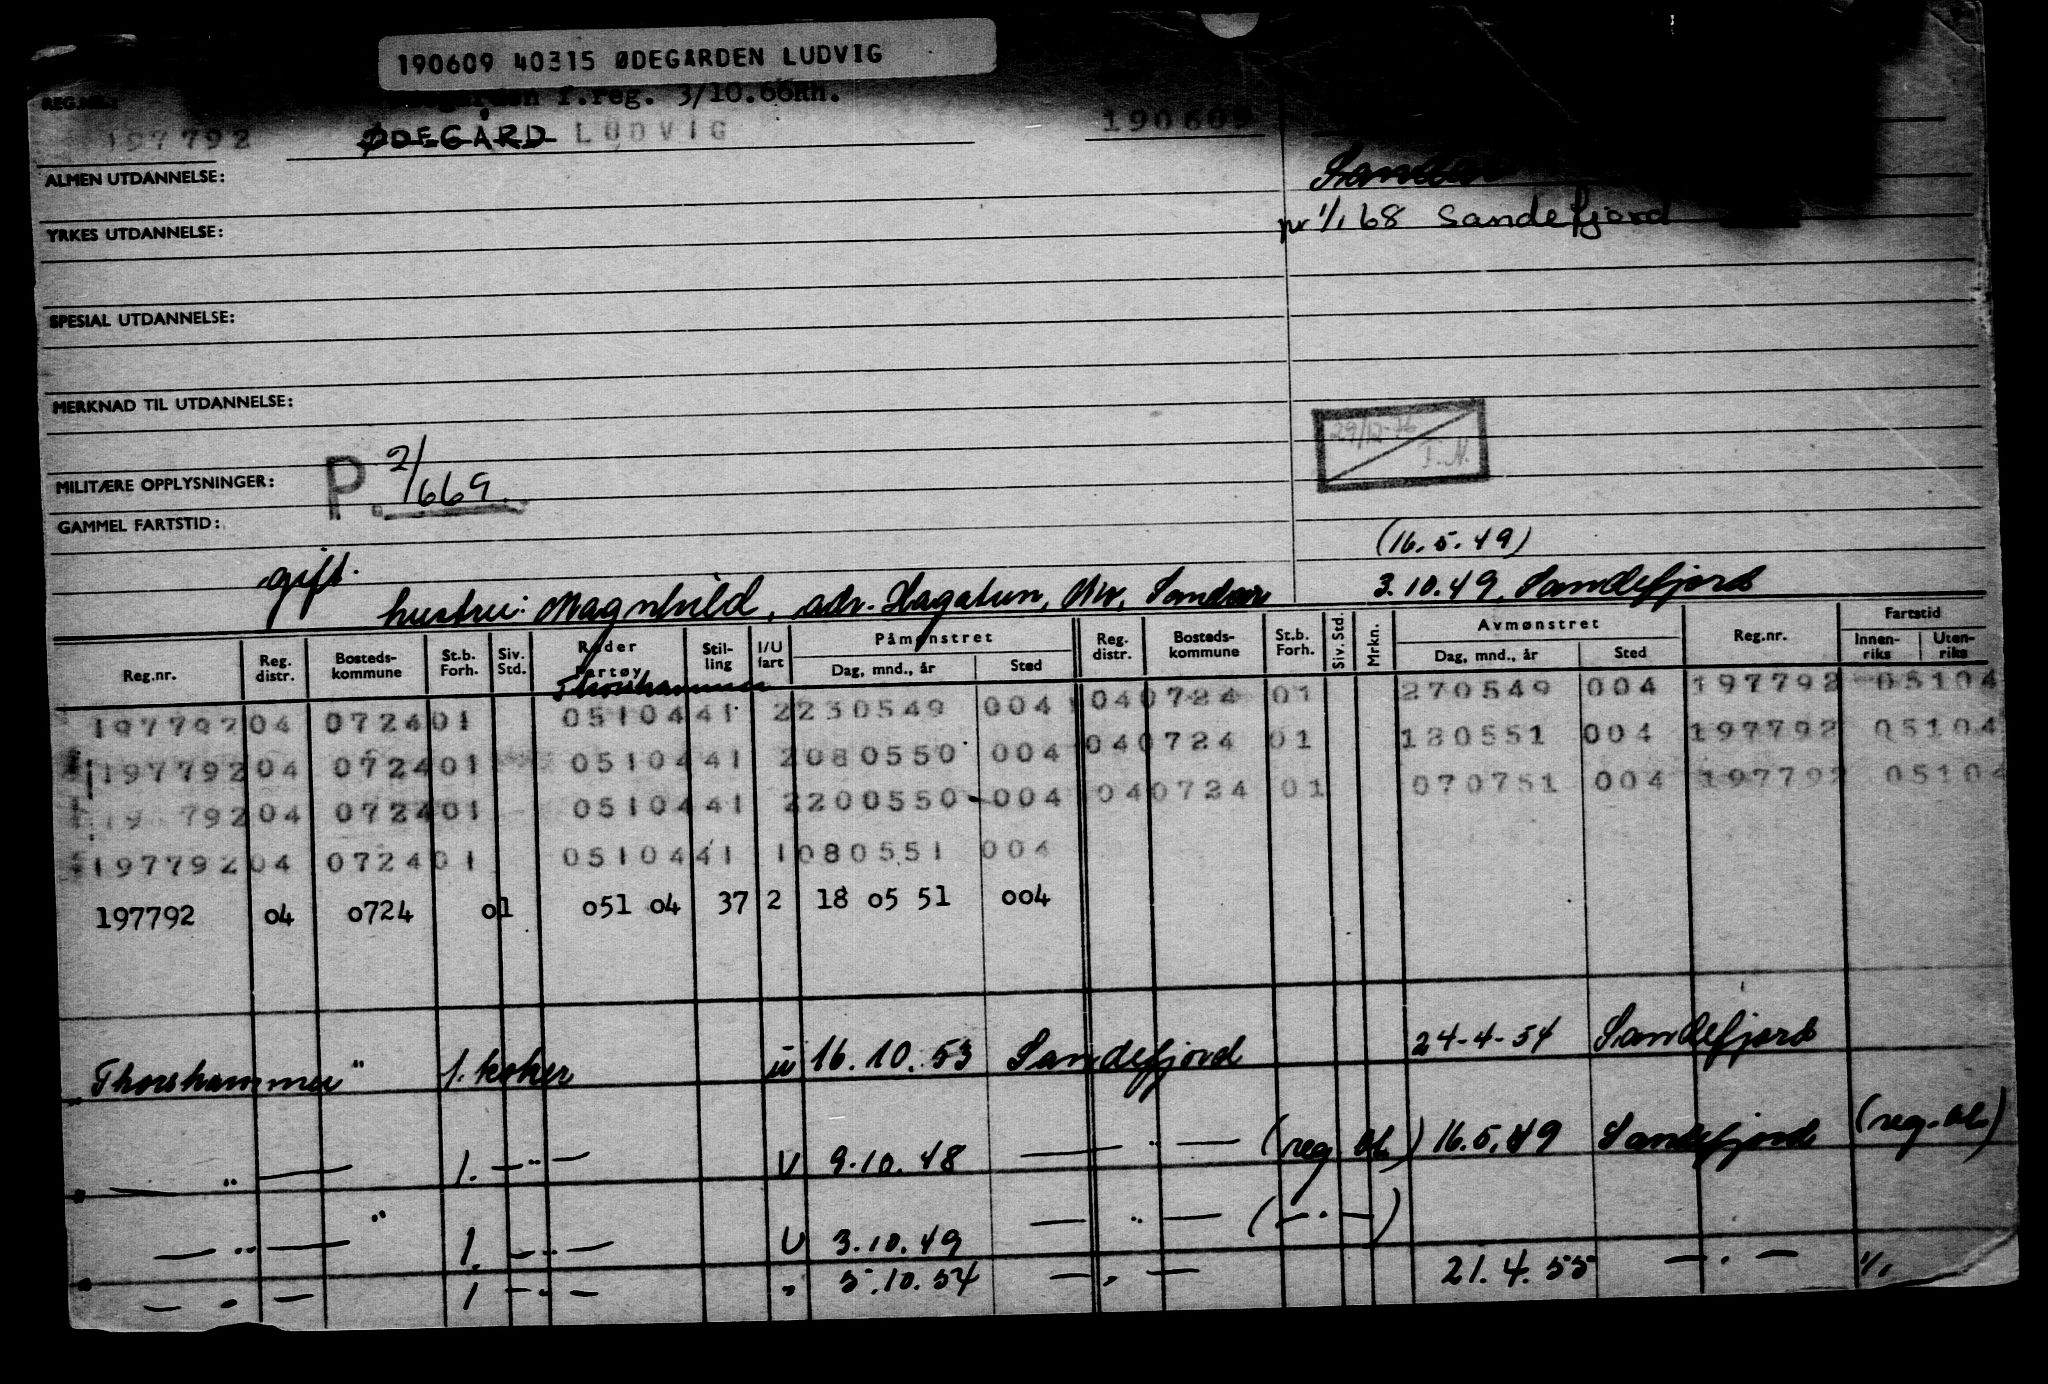 190609 40315 ØDEGARDEN LUDVIG
REG.NR.:
f.reg. 3/10.66RH.
197792 ØDEGÅRD LUDVIG 190609
ALMEN UTDANNELSE:
YRKES UTDANNELSE:
pr 1/1 68 Sandefjord
SPESIAL UTDANNELSE:
MERKNAD TIL UTDANNELSE:
29/12-76
T.N.
MILITÆRE OPPLYSNINGER:
P. 2/669.
GAMMEL FARTSTID:
(16.5.49)
gift.
hustru: Magnhild, adr. Hagatun,
3.10.49, Sandefjord
Reg.nr. Reg. distr. Bosteds- kommune St.b. Forh. Siv. Std. Reder Fartøy Stil- ling I/U fart Påmønstret Dag, mnd., år Sted Reg. distr. Bosteds- kommune St.b. Forh. Siv. Std. Mrkn. Avmønstret Dag, mnd., år Sted Reg.nr. Fartstid Innen- riks Uten- riks
Thorshammer
197792 04 0724 01 05104 41 2 230549 004 04 0724 01 270549 004 197792 05104
197792 04 0724 01 05104 41 2 080550 004 04 0724 01 180551 004 197792 05104
19 792 04 0724 01 05104 41 2 200550 004 04 0724 01 070751 004 197792 05104
197792 04 0724 01 05104 41 1 080551 004
197792 04 0724 01 051 04 37 2 18 05 51 004
Thorshammer " 1. koker u 16.10.53 Sandefjord 24-4-54 Sandefjord
— " — 1. — " — U 9.10.48 — " — (reg. bl.) 16.5.49 Sandefjord (reg. bl.)
— " — " 1. — " — U 3.10.49 — " — (— " —)
— " — 1 — " — " 5.10.54 — " — 21.4.55 — " — 1/1